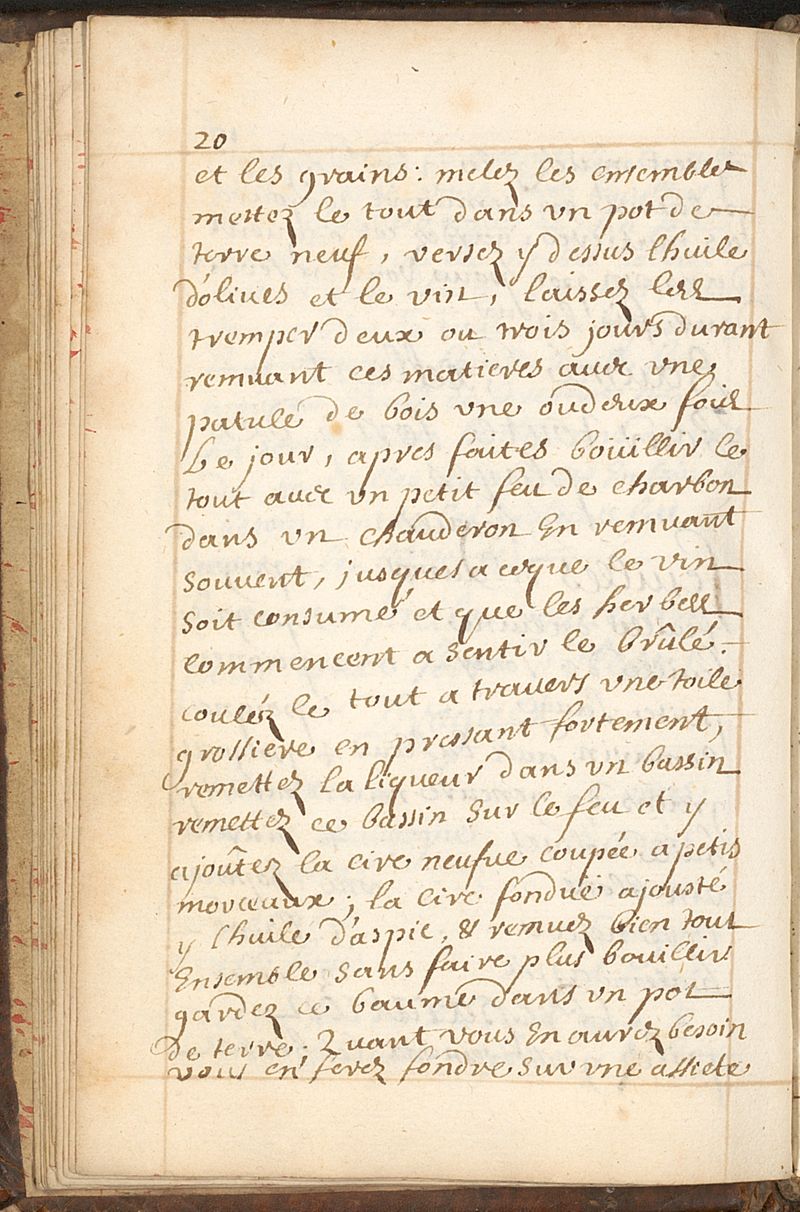 20
et les grains : melez les ensemble
mettez le tout dans un pot de
terre neuf, versez y dessus lhuile
d'olives et le vin, laissez les
tremper deux ou trois jours durant
remuant ces matieres avec vne
patule de bois vne ou deux fois
Le jour, apres faites boüillir le
tout avec vn petit feu de charbon
dans vn chauderon En remuant
souvent, jusques a ceque le vin
soit consumé et que les herbes
commencent a sentir le brûlé.
couléz le tout a travers vne toile
grossiere en pressant fortement,
remettez la liqueur dans vn bassin
remettez ce bassin sur le feu et y
ajoûtez la cire neufve coupée a petis
morceaux ; la cire fondue ajousté
y lhuile d'aspic, & remuez bien tout
Ensemble sans faire plus bouillir
gardez ce baume dans vn pot
de terre ; Quant vous En aurez besoin
vous en ferez fondre sur vne assiete